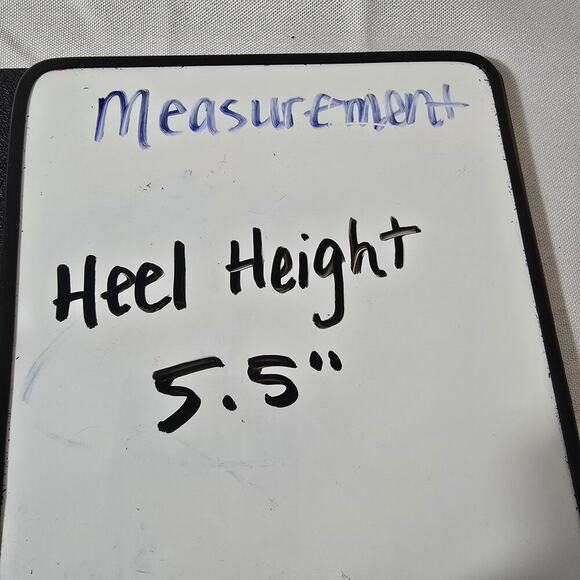 Measurement
Heel Height
5.5"